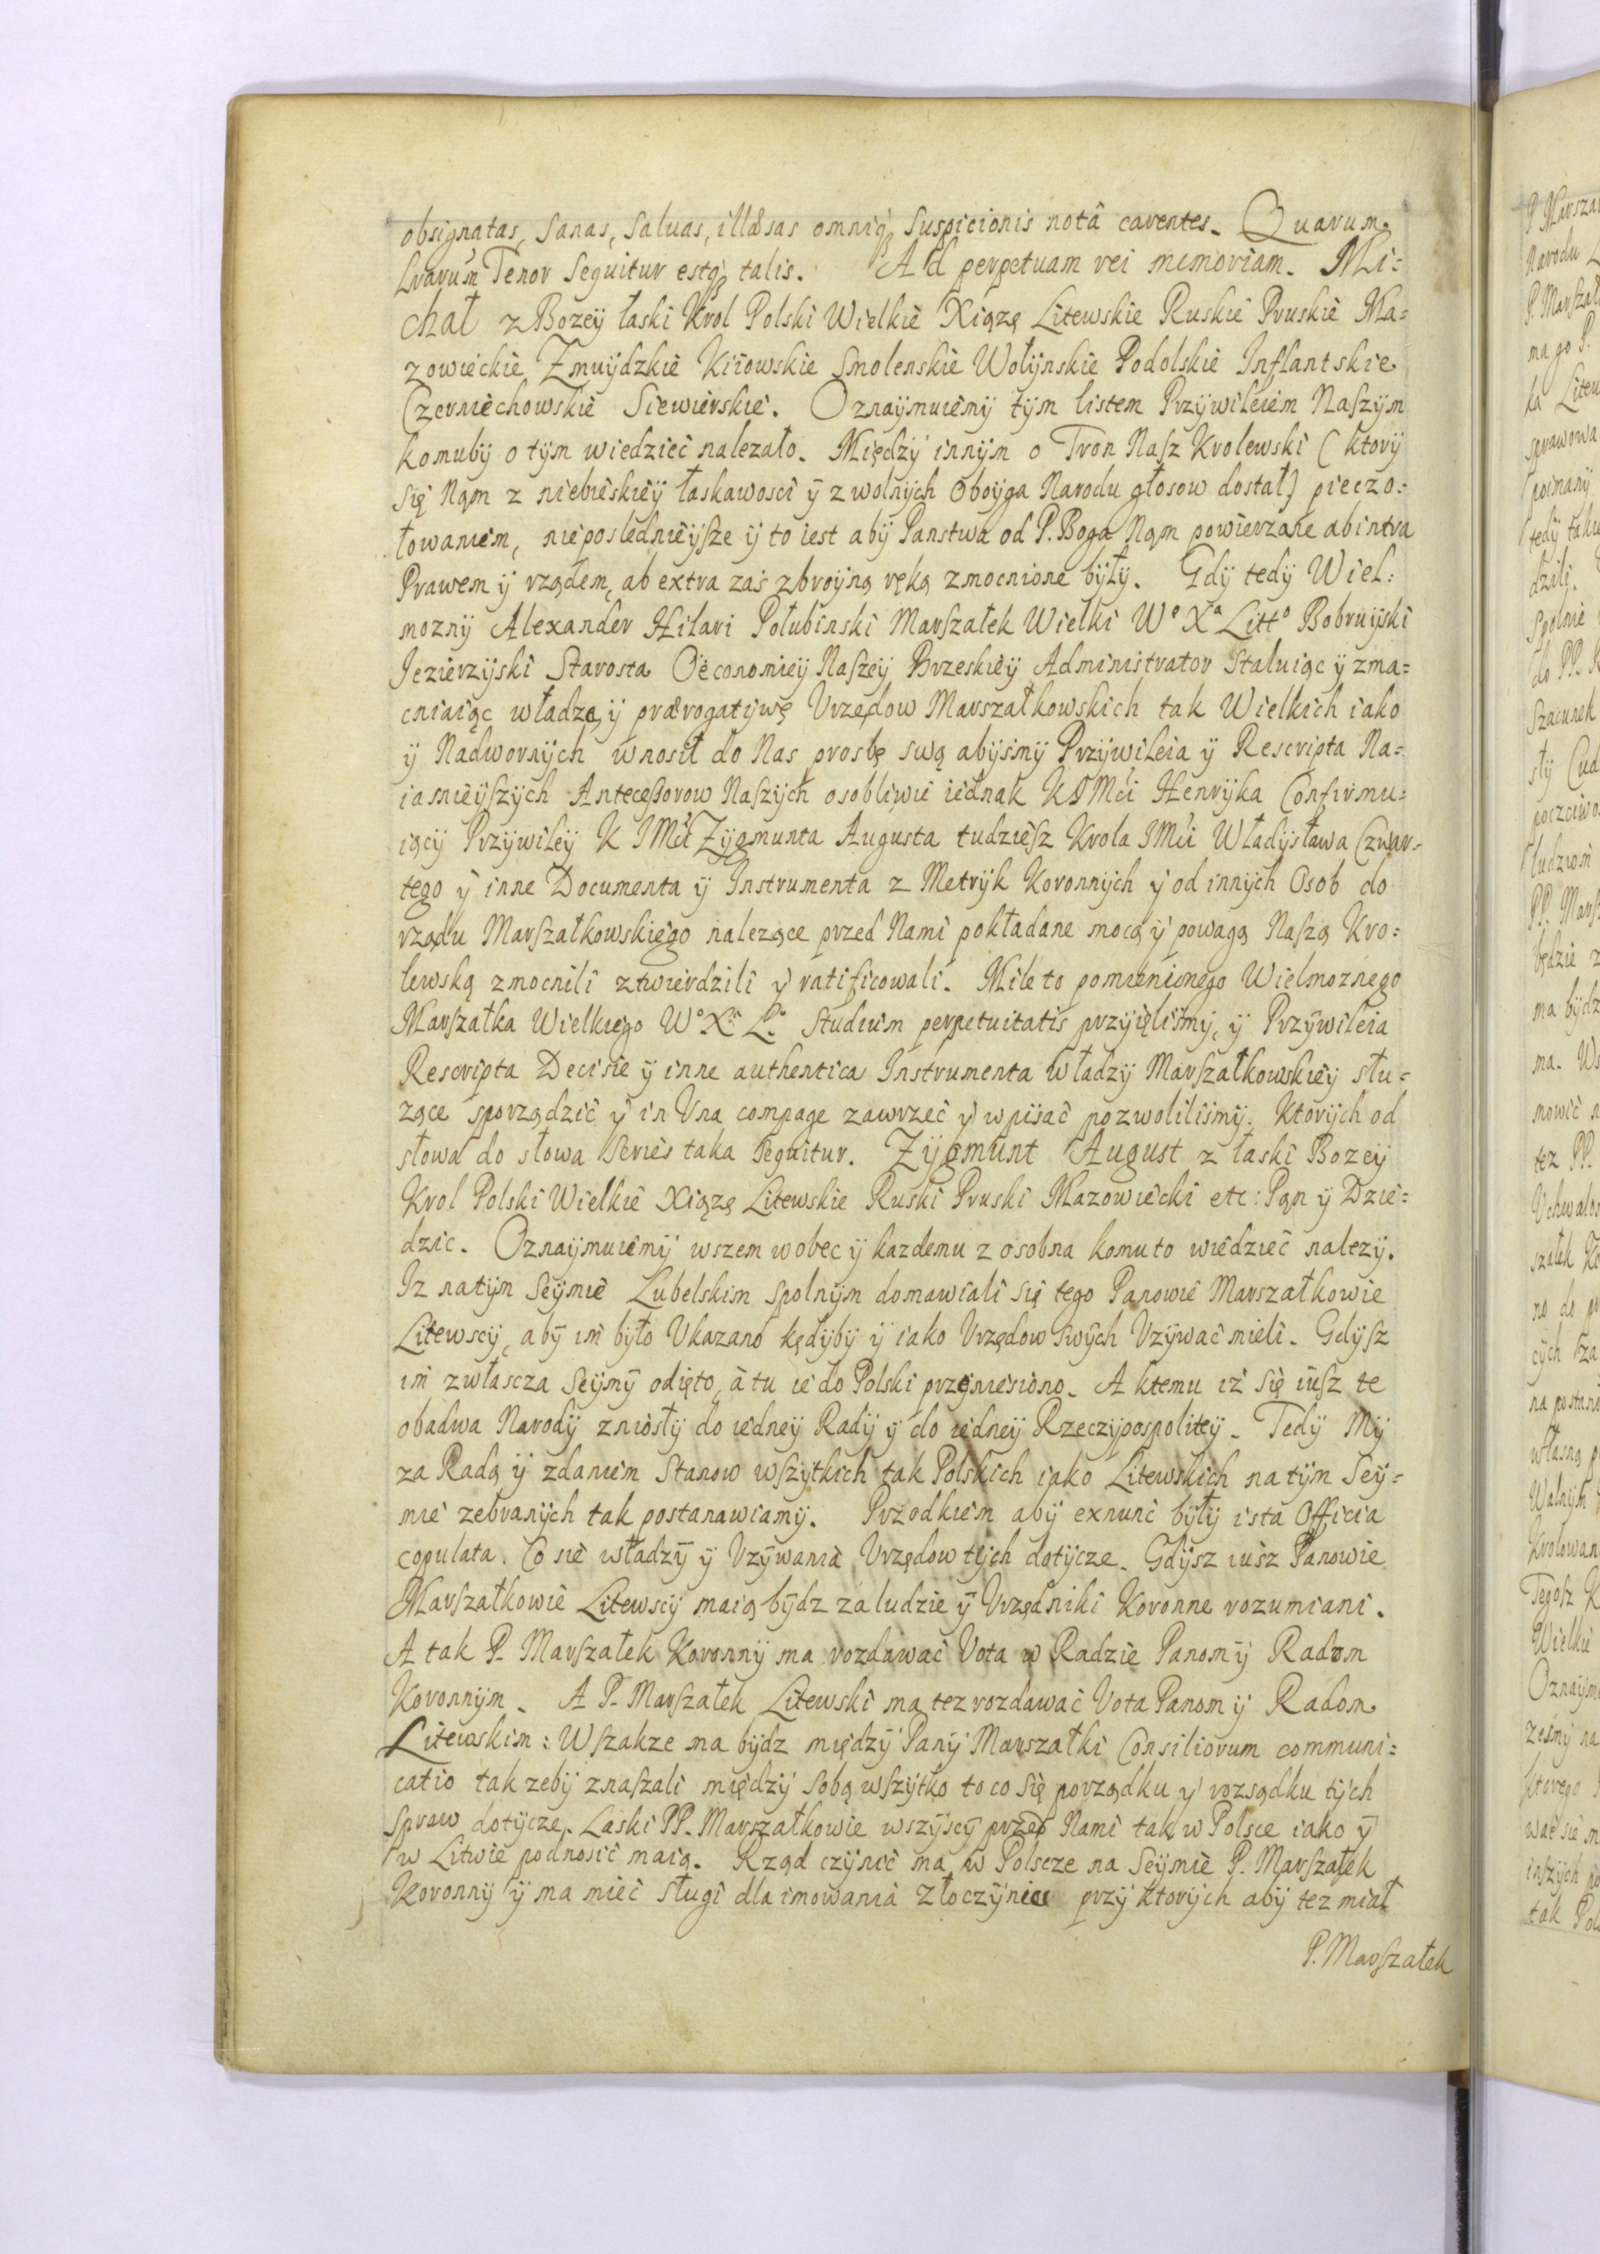 obsignatas, sanas, saluas, illæsas omniq suspicionis notâ carentes. Quarum.
Lrarum Tenor sequitur estq talis. Ad perpetuam rei memoriam. Mi=
chał z Bozey łaski Krol Polski Wielkie Xiązę Litewskie Ruskie Pruskie Ma=
zowieckie Zmuydzkie Kiiowskie Smolenskie Wołynskie Podolskie Inflantskie
Czerniechowskie Siewierskie. Oznaymuiemy tym listem Przywileiem Naszym
komuby o tym wiedzieć nalezało. Między innym o Tron Nasz Krolewski (ktory
się Nąm z niebieskiey łaskawosci y z wolnych oboyga Narodu głosow dostał) pieczo=
łowaniem, nieposlednieysze y to iest aby Panstwa od P. Boga Nąm powierzone abintra
Prawem y rządem, ab extra zaś zbroyną ręką zmocnione były. Gdy tedy Wiel=
mozny Alexander Hilari Połubinski Marszałek Wielki Wo Xa Litto Bobruyski
Jezierzyski Starosta Oeconomiey Naszey Brzeskiey Administrator Staluiąc y zma=
cniaiąc władzą y prærogatiwę Vrzędow Marszałkowskich tak Wielkich iako
y Nadwornych wnosił do Nas prosbę swą abysmy Przywileia y Rescripta Na=
iasnieyszych Antecessorow Naszych osobliwie iednak K I Mći Henryka Confirmu=
iący Przywiley K IMći Zygmunta Augusta tudziesz Krola IMći Władysława Czwar=
tego y inne Documenta y Instrumenta z Metryk Koronnych y od innych Osob do
rządu Marszałkowskiego nalezące przed Nami pokładane mocą y powagą Naszą Kro=
lewską zmocnili ztwierdzili y ratificowali. Mile to pomienionego Wielmoznego
Marszałka Wielkiego Wo Xa Lo studium perpetuitatis przyięlismy, y Przywileia
Rescripta Decisie y inne authentica Instrumenta władzy Marszałkowskiey słu=
zące sporządzić y in Vna compage zawrzeć y wpisać pozwolilismy. Ktorych od
słowa do słowa Series taka sequitur. Zygmunt August z łaski Bozey
Krol Polski Wielkie Xiązę Litewskie Ruski Pruski Mazowiecki etc: Pąn y Dzie=
dzic. Oznaymuiemy wszem wobec y kazdemu z osobna komu to wiedzieć nalezy.
Iz natym Seymie Lubelskim spolnym domawiali się tego Panowie Marszałkowie
Litewscy, aby im było Vkazano kędyby y iako Vrzędow swych Vzywać mieli. Gdysz
im zwłascza Seymy odięto, à tu ie do Polski przeniesiono. A ktemu iż się iusz te
obadwa Narody zniosły do iedney Rady y do iedney Rzeczypospolitey. Tedy My
za Radą y zdaniem Stanow wszytkich tak Polskich iako Litewskich na tym Sey=
mie zebranych tak postanawiamy. Przodkiem aby exnunc były ista Officia
copulata. Co sie władzy y Vzywania Vrzędow tych dotycze. Gdysz iusz Panowie
Marszałkowie Litewscy maią bydz za ludzie y Vrzędniki Koronne rozumiani.
A tak P. Marszałek Koronny ma rozdawać Vota w Radzie Panom y Radom
Koronnym. A P. Marszałek Litewski ma tez rozdawać Vota Panom y Radom
Litewskim: Wszakze ma bydz między Pany Marszałki Consiliorum communi=
catio tak zeby znaszali między sobą wszytko to co się porządku y rozsądku tych
spraw dotycze. Laski PP. Marszałkowie wszyscy przed Nami tak w Polsce iako y
w Litwie podnosić maią. Rząd czynić ma w Polscze na Seymie P. Marszałek
Koronny y ma mieć sługi dla imowania złoczynicu przy ktorych aby tez miał
P. Marszałek